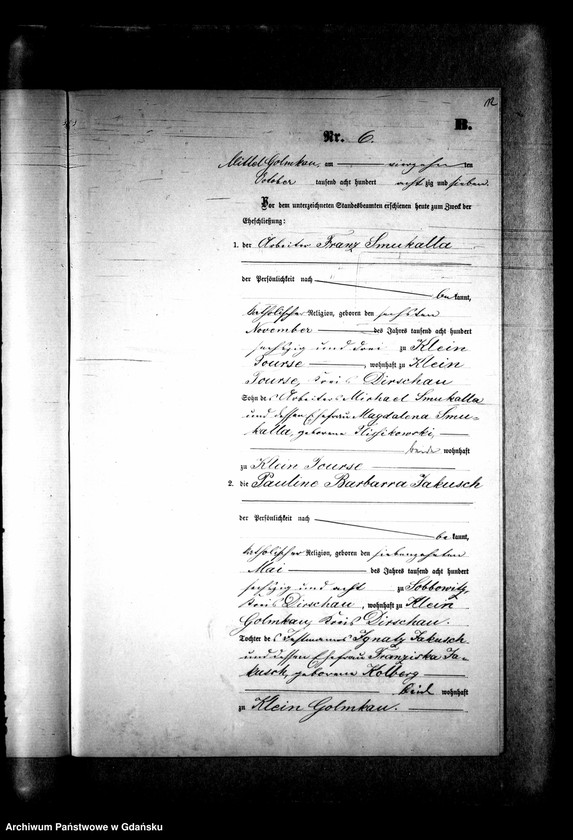 12
B.
Nr. 6.
Mittel Golmkau, am vierzehn ten
October tausend acht hundert acht zig und sieben.
Vor dem unterzeichneten Standesbeamten erschienen heute zum Zweck der
Eheschließung:
1. der Arbeiter Franz Smukalla
der Persönlichkeit nach
be kannt,
katholischer Religion, geboren den sechsten
November des Jahres tausend acht hundert
sechszig und drei zu Klein
Tourse, wohnhaft zu Klein
Tourse, Kreis Dirschau
Sohn des Arbeiters Michael Smukalla
und dessen Ehefrau Magdalena Smu=
kalla, geborene
beide wohnhaft
zu Klein Tourse
2. die Pauline Barbarra Jakusch
der Persönlichkeit nach
be kannt,
katholischer Religion, geboren den siebenzehnten
Mai des Jahres tausend acht hundert
sechszig und acht zu Sobbowitz,
Kreis Dirschau, wohnhaft zu Klein
Golmkau, Kreis Dirschau.
Tochter des Instmanns Ignatz Jakusch
und dessen Ehefrau Franziska Ja=
kusch, geborene Kolberg
beide wohnhaft
zu Klein Golmkau.
Archiwum Państwowe w Gdańsku